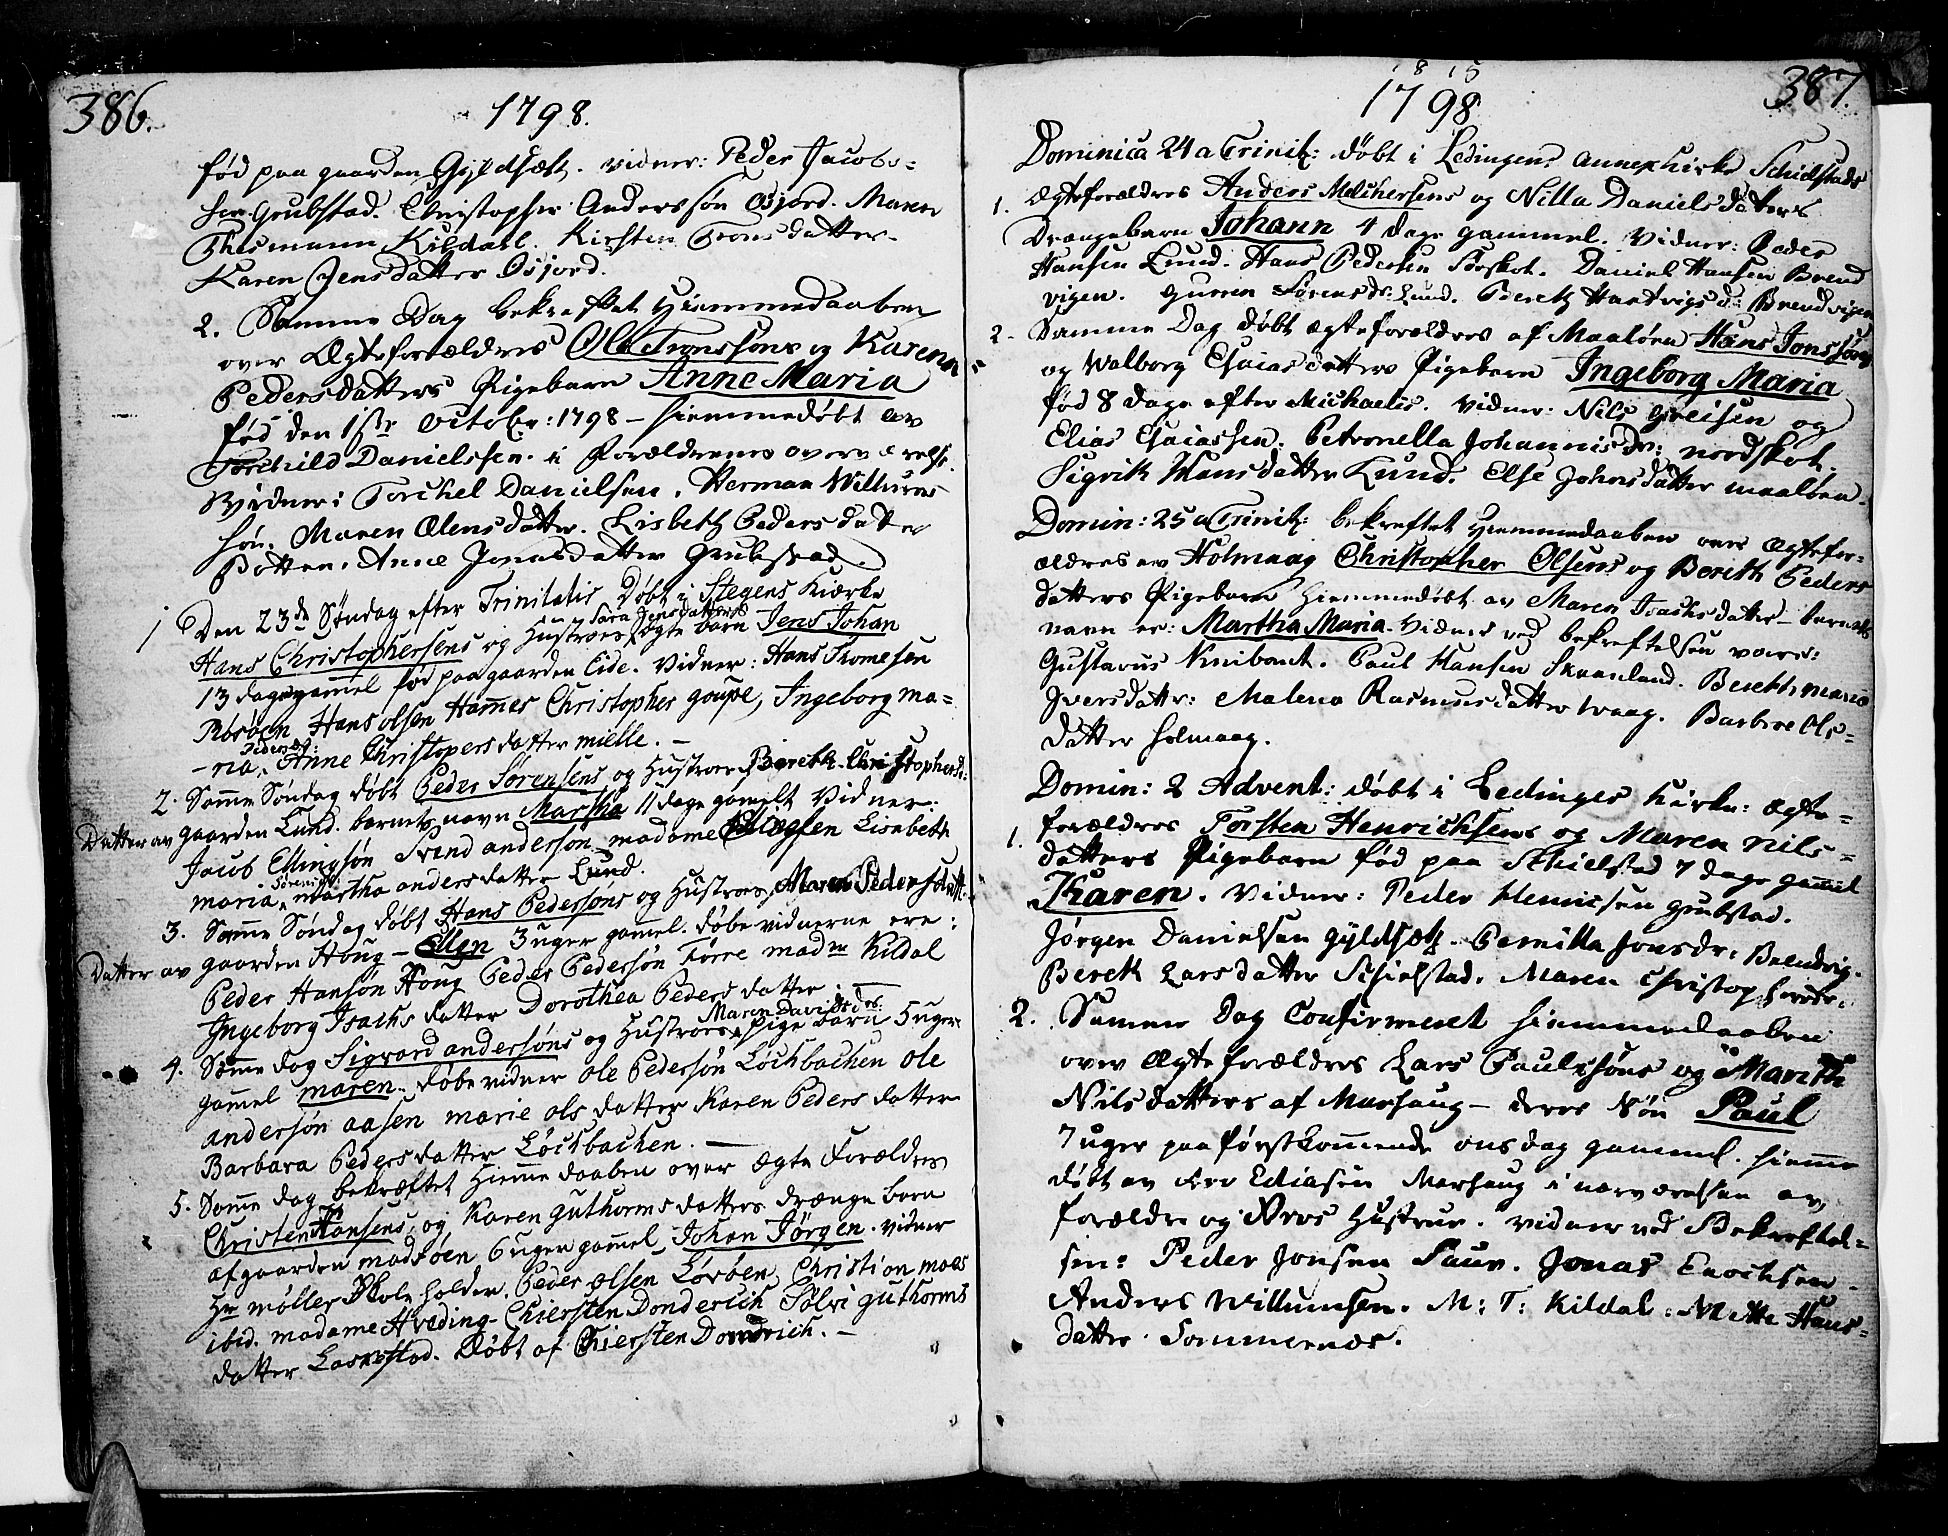 386.
1798.
fød paa gaarden Gyldsætt. vidner: Peder Jacobs-
sen Grubstad. Christopher Anderssøn Osjord. Maren
Thesmann Kildall. Kirsten Tronsdatter.
Karen Jensdatter Osjord.
2. Samme Dag bekreftet Hiemmedaaben
over Ægteforældres Ole Tronssøns og Karen
Pedersdatters Pigebarn Anne Maria
fød den 1ste October: 1798 - hiemmedøbt av
Torchild Danielssen. i Forældrenes overværelse
Vidner: Torchel Danielsen, Herman Willums
søn. Maren Olensdatter. Lisbeth Peders datter
Botten. Anne Jonasdatter Grubstad.
1 Den 23de Søndag efter Trinitatis Døbt i Stegens Kierke
Sara Jensdatters
Hans Christophersens og Hustroes ægte barn Jens Johan
13 dage gammel fød paa gaarden Eide. Vidner: Hans Thomesen
Rørsøen Hans olsen Hamnes Christopher goupe, Ingeborg ma-
-ria Pedersd: Anne Christopersdatter mielle. -
2. Samme Søndag døbt Peder Sørensens og Hustroes Bereth Christophersd:
Datter av gaarden Lund. barnets navn Martha 11 dage gamelt Vidner:
Jacob Ellingsøn Svend anderson madame Lisabeth
maria Sørensd: martha andersdatter Lund.
3. Samme Søndag døbt Hans Pedersøns og Hustroes Maren Pedersdatt:
Datter av gaarden Houg - Ellen 3 uger gamel. døbevidnerne ere:
Peder Hansøn Houg Peder Pedersøn Førre madm Kildal
Ingeborg Isachs datter Dorothea Peders datter: -
Maren Davidsd:
4. Samme dag Sigvard andersøns og Hustroes Pige barn 5 uger
gammel maren. døbevidner ole Pedersøn Løckbachen ole
andersøn aasen marie ols datter Karen Peders datter
Barbara Pedersdatter Løckbachen. -
5. Samme dag bekræftet Hiemme daaben over ægte Forældres
Christen Hansens og Karen guthorms datters drænge barn
af gaarden madsøen 6 uger gammel Johan Jørgen. vidner
Hr møller Skoleholder. Peder olsen Lørøen Christian moes
ibid. madame Hveding Chiersten Donderich Sølvi guthorms
datter Laskestad. døbt af Chiersten Dondrich. -
387.
1815
1798
Dominica 24 a Trinit: døbt i Lødingens Annexkirke Schielstads
1. ægteforældres Anders Melchersens og Nilla Danielsdatters
Drængebarn Johann 4 dage gammel. Vidner: Peder
Hansen Lund. Hans Pedersen Forskot. Daniel Hansen Brend
vigen. Guren Sørensdr: Lund. Bereth Hartvigsd: Brendvigen
2. Samme Dag døbt ægteforældres af Maaløen Hans Jonssøns
og Walborg Esaiasdatters Pigebarn Ingeborg Maria
fød 8 dage efter Michaelis. vidner: Nils Greisen og
Elias Esaiassen. Petronella Johannisdr: nordskot.
Sigrik Hansdatter Lund. Else Johnsdatter maaløen.
Domin: 25 a Trinit: bekreftet Hiemmedaaben over Ægtefor-
ældres av Holmaag Christopher Olsens og Bereth Peders
datters Pigebarn hiemmedøbt av Maren Isachsdatter - barnets
navn er: Martha Maria. Vidner ved bekreftelsen vare:
Gustavus . Paul Hansen Skaanland. Bereth maria
Iversdattr: Malena Rasmusdatter waag. Barbro Ols-
datter holmaag.
Domin: 2 Advent: døbt i Lødinges kirke: ægte-
1. forældres Torsten Henrichsens og Maren Nils-
datters Pigebarn fød paa Schielstad 7 dage gammel
Karen. Vidner: Peder Henricsen Grubstad.
Jørgen Danielsen Gyldsætt. Pernilla Jonsdr: Brendvig.
Bereth Larsdatter Schielstad. Maren Christophersdr:
2. Samme Dag Confirmeret hiemmedaaben
over Ægteforældres Lars Paulssøns og Marith
Nilsdatters af Marhaug - deres søn Paul
7 uger paa førstkommende onsdag gammel. hiemme
døbt av Eliasen Marhaug i nærværelsen av
forældre og Hustrue. vidner ved Bekreftel-
sen: Peder Jonsen . Jonas Enochsen
Anders Willumsen. M: T: Kildal. Mette Hans-
datter Sommernæs.